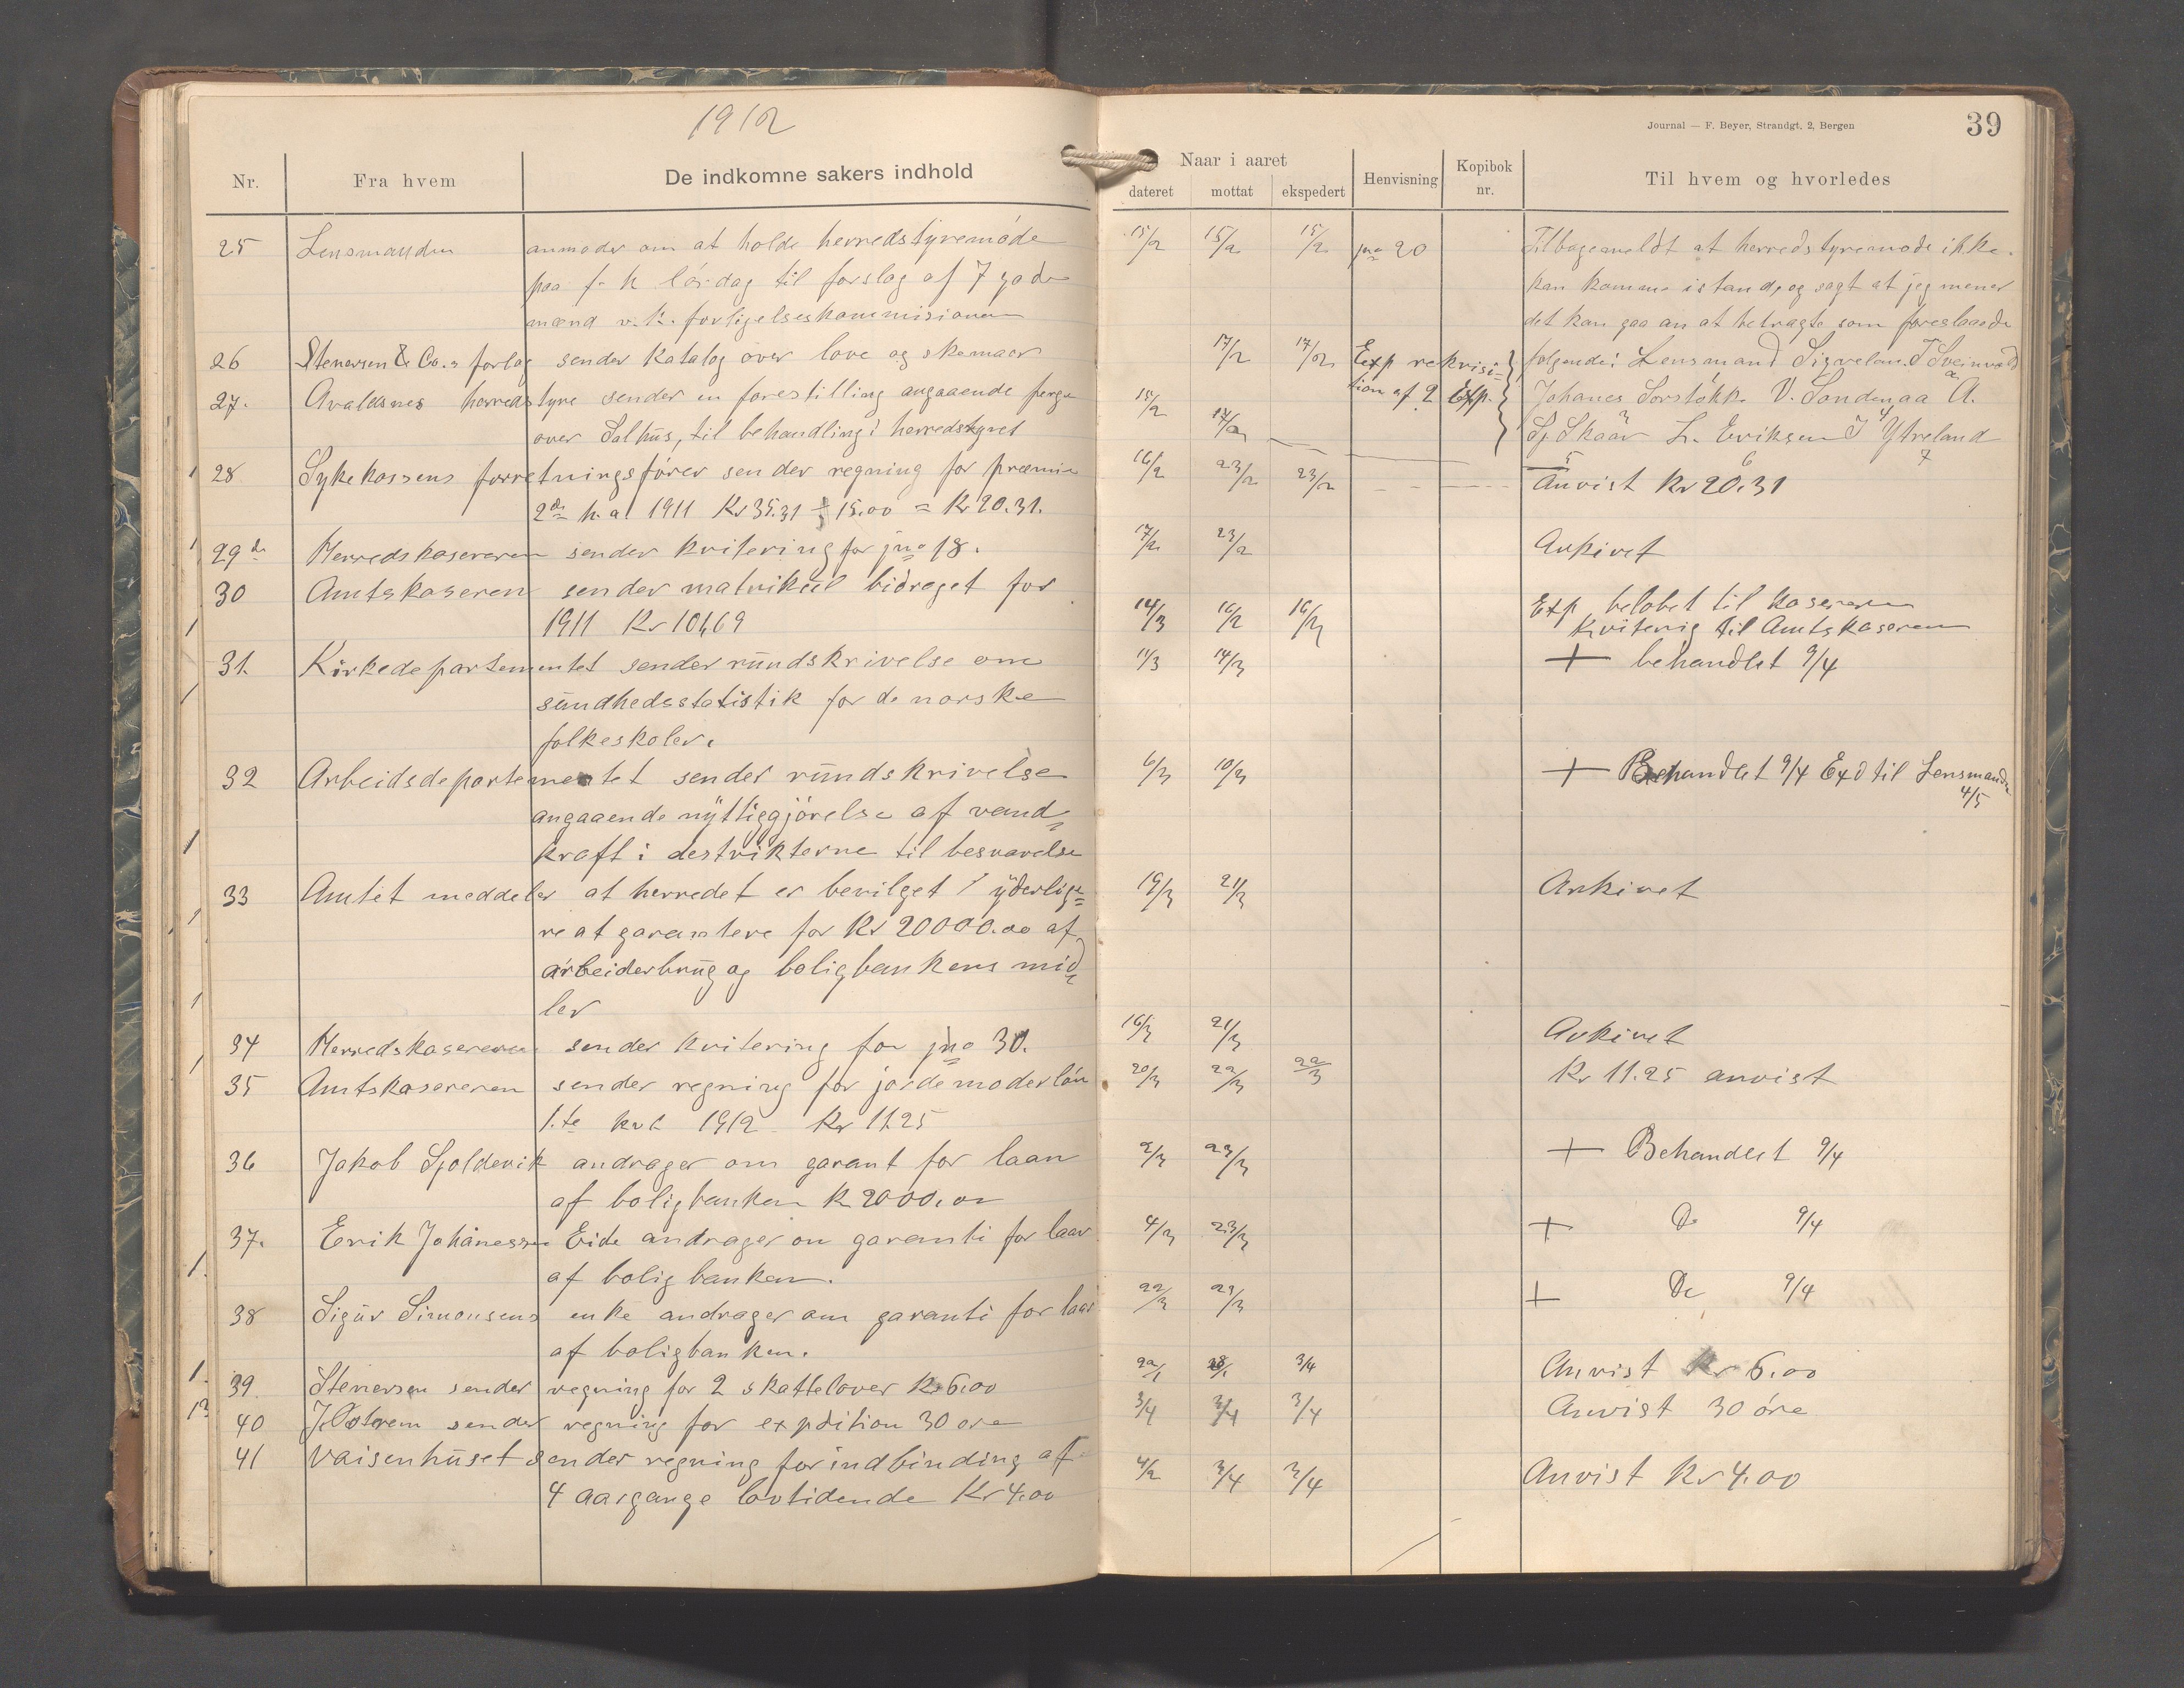 1912
Nr.
Fra hvem
De indkomne sakers indhold
25 Lensmanden anmoder om at holde herredstyremöde
paa f. k lördag til forslag af 7 gode
mænd v. k. forligelseskommisionen
26 Stenersen & Co.s forlag sender Katalog over love og skemaer
27. Avaldsnes herredstyre sender en forestilling angaaende ferge
over Salhus, til behandling i herredstyret
28 Sykekassens forretningsfører sender regning for præmie
2de h. a. 1911 Kr 35.31 ÷ 15.00 = Kr 20.31.
29 Herredskasereren sender kvitering for jno 18.
30 Amtskaseren sender matrikul bidraget for
1911 Kr 104,69
31. Kirkedepartementet sender rundskrivelse om
sundhedsstatistik for de norske
folkeskoler.
32 Arbeidsdepartementet sender rundskrivelse
angaaende nyttiggjörelse af vand
kraft i destrikterne til besvarelse
33 Amtet meddeler at herredet er bevilget yderlige=
re at garantere for Kr 20000.00 af
arbeiderbrug og boligbankens mid
ler
34 Herredskasereren sender kvitering for jno 30.
35 Amtskasereren sender regning for jordemoderlön
1.te kvt 1912 Kr 11.25
36 Jakob Sjoldevik andrager om garant for laan
af boligbanken Kr 2000.00
37. Erik Johanessen Eide andrager om garanti for laan
af boligbanken.
38 Sigur Simonsens enke andrager om garanti for laan
af boligbanken.
39. Stenersen sender regning for 2 skattelover Kr 6.00
40 J. Østrem sender regning for expdition 30 øre
41 Vaisenhuset sender regning for indbinding af
4 aargange lovtidende Kr 4.00
Journal — F. Beyer, Strandgt. 2, Bergen
39
Naar i aaret
dateret
mottat
ekspedert
Henvisning
Kopibok
nr.
Til hvem og hvorledes
15/2 15/2 15/2 jno 20 Tilbagemeldt at herredstyremöde ikke
kan komme istand, og sagt at jeg mener
det kan gaa an at betragte som foreslaaede
17/2 17/2 Exp rekvisi= følgende: Lensmand
15/2 17/2 tion af 2 Exp. Johanes V. Sandenaa A.
Sj. Skaar L. Eriksen J Ytreland
16/2 23/2 23/2 Anvist Kr 20.31
17/2 23/2 Arkivet
14/3 16/2 16/3 Exp beløbet til kasereren
Kvitering til Amtskaseren
11/3 14/3 + behandlet 9/4
6/3 10/3 + Behandlet 9/4 Exd til Lensmanden
4/5
19/3 21/3 Arkivet
16/3 21/3 Arkivet
20/3 22/3 22/3 Kr 11.25 anvist
2/3 23/3 + Behandlet 9/4
4/3 23/3 + Do 9/4
22/3 23/3 + Do 9/4
22/1 28/1 3/4 Anvist Kr 6.00
3/4 3/4 3/4 Anvist 30 öre
4/2 3/4 3/4 Anvist Kr 4.00